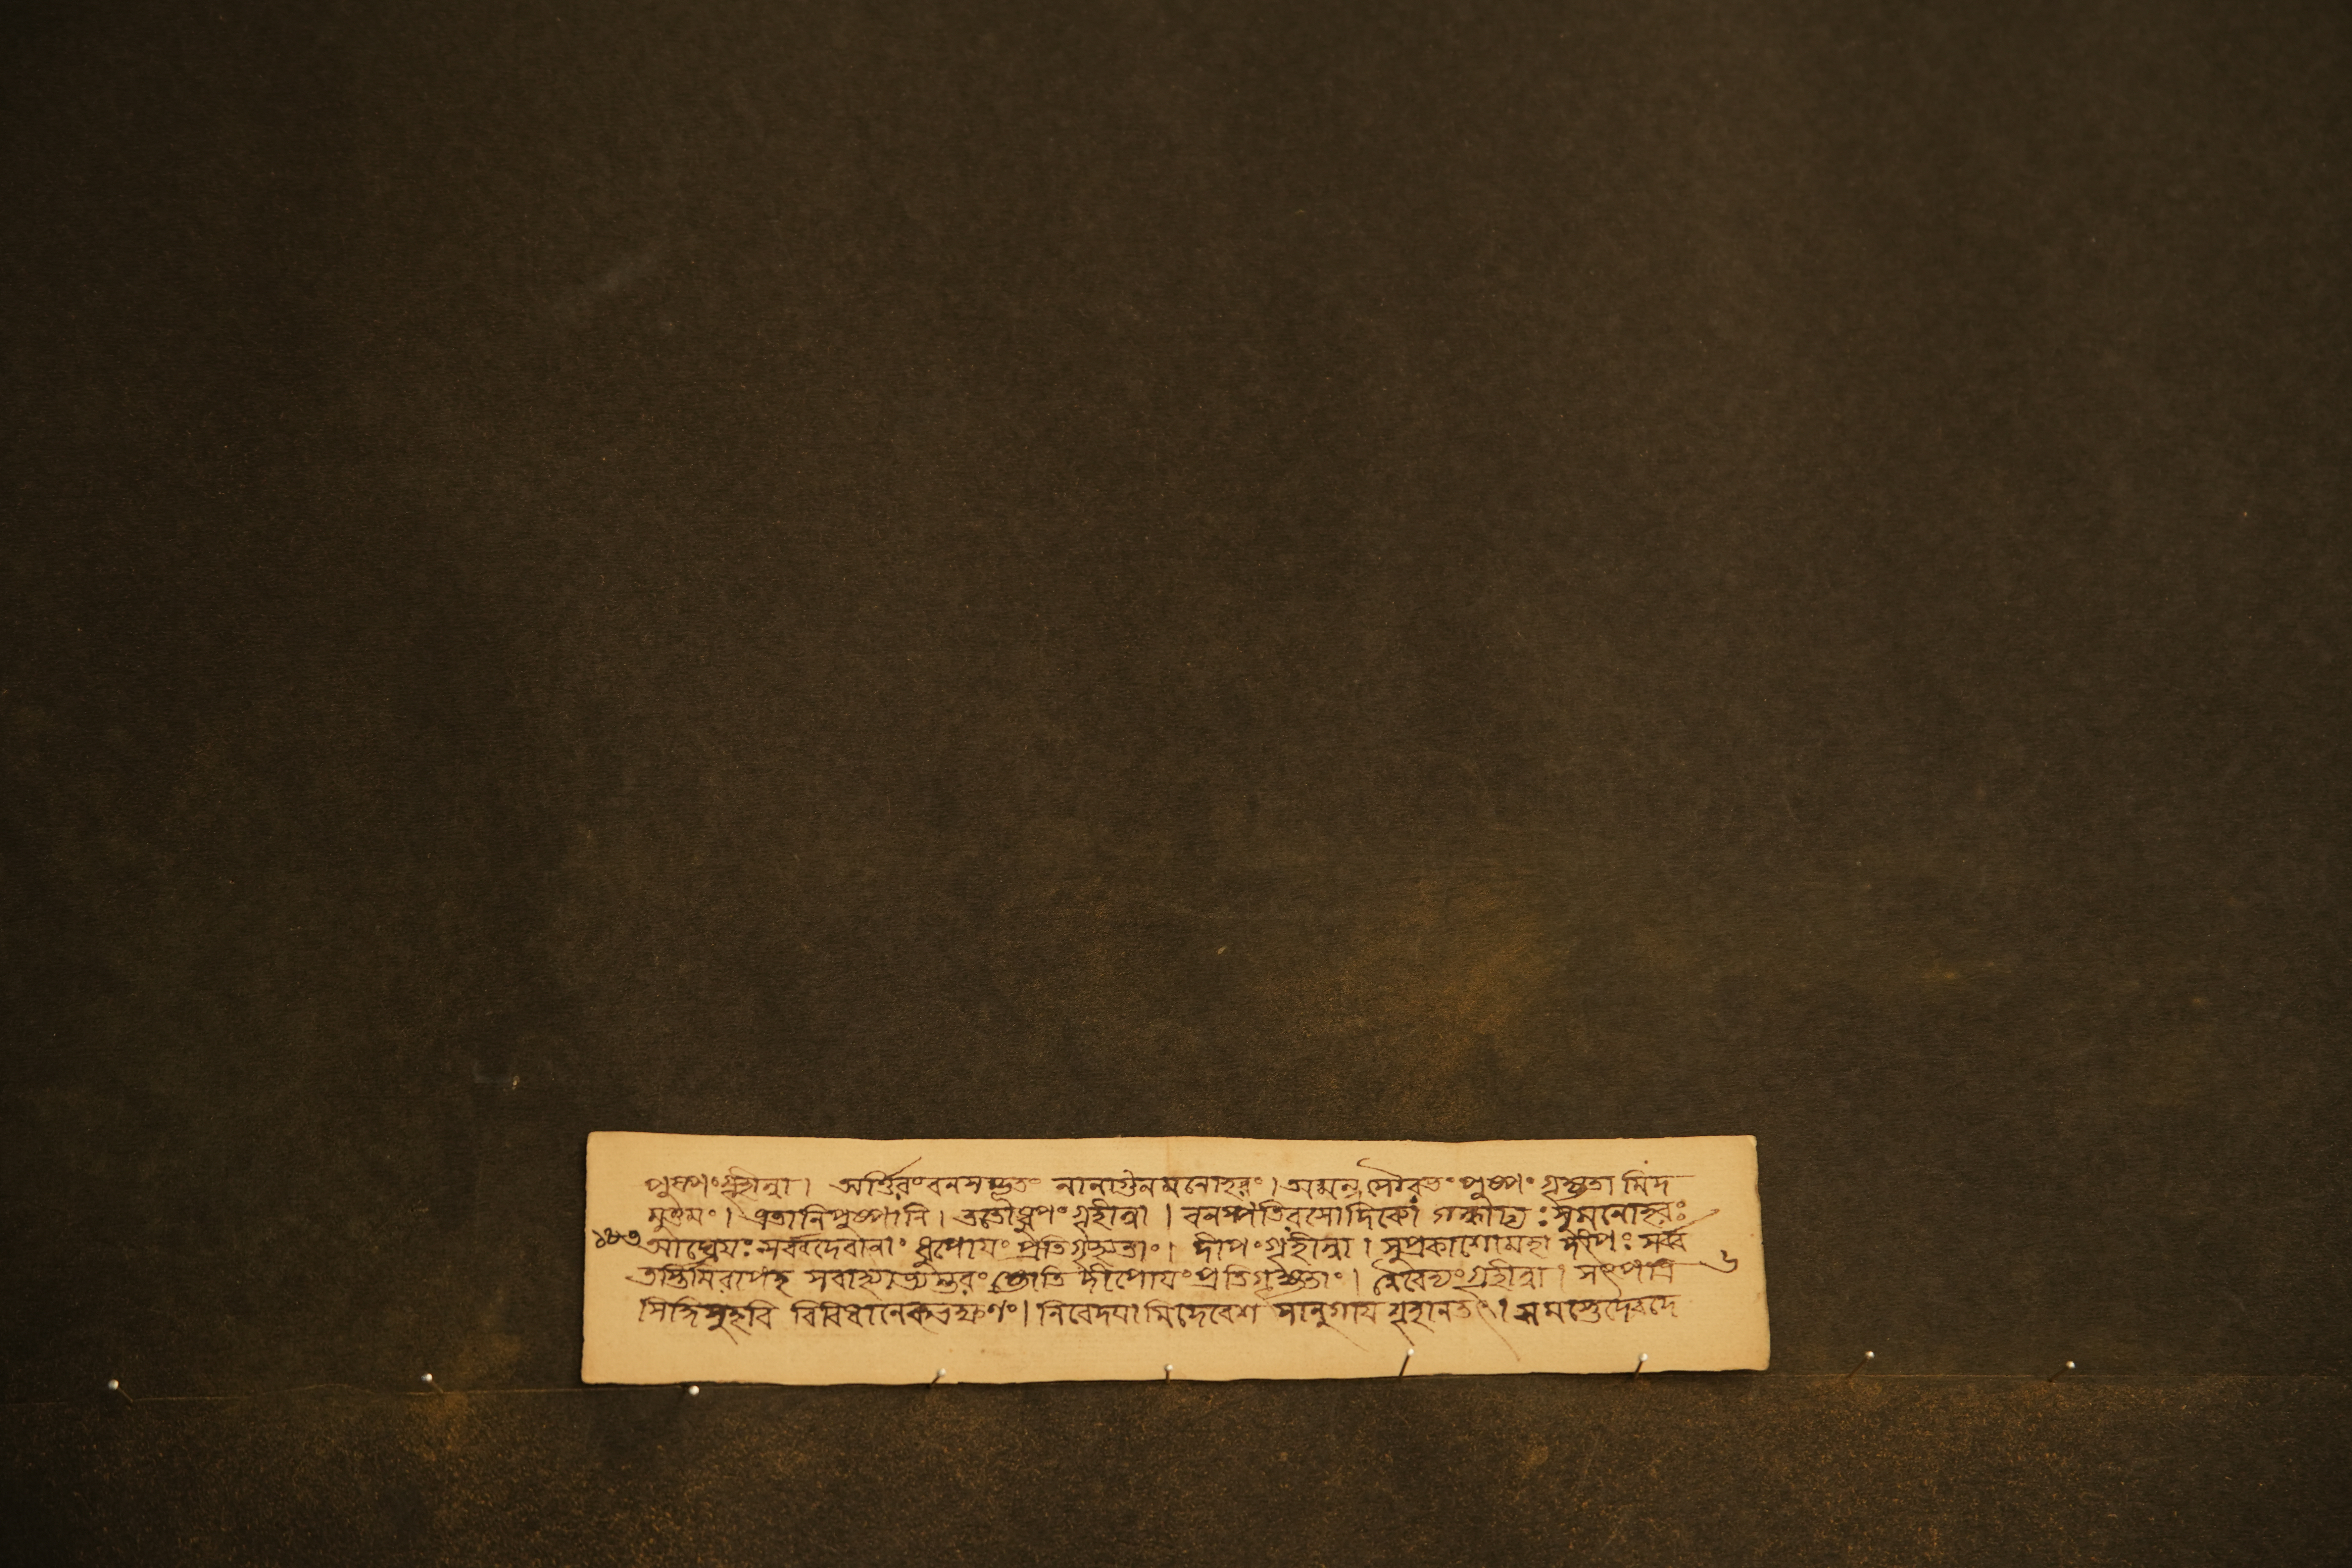 পুষ্পং গৃহীত্বা । বনসম্ভূতং নানাগুনমনোহরং । পুষ্পং গৃহ্যতামিদ
মুত্তমং । এতানি পুষ্পানি । ততো ধূপং গৃহীত্বা । বনস্পতিরসোদিব্যো গন্ধাঢ্যঃ সুমনোহরঃ
১৮৩ আঘ্রেয়ঃ সর্ব্বদেবানাং ধুপোয়ং প্রতিগৃহ্যতাং । দীপং গৃহীত্বা । সুপ্রকাশো মহাদীপঃ সর্ব্ব
তস্তিমিরাপহ সবাহ্যাভ্যন্তরং জ্যোতি দীপোয়ং প্রতিগৃহ্যতাং । নৈবেদ্যং গৃহীত্বা । সৎপাত্র ৬
বিবিধানেকভক্ষণং । নিবেদয়ামি দেবেশ সানুগায় গৃহানতৎ ।